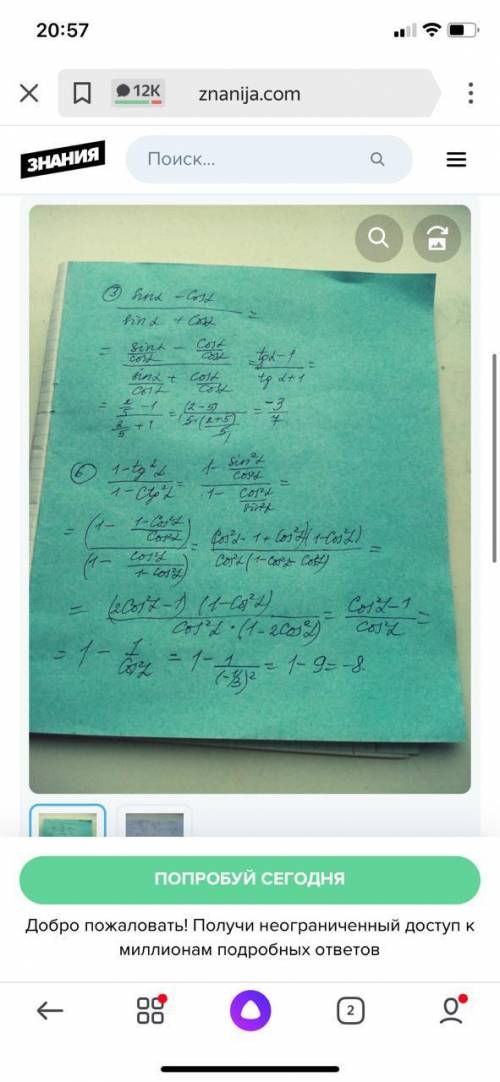 20:57
12K
znanija.com
ЗНАНИЯ
Поиск...
③ (sinα - cosα)/(sinα + cosα) =
= (sinα/cosα - cosα/cosα)/(sinα/cosα + cosα/cosα) = (tgα-1)/(tgα+1) =
= (2/5 - 1)/(2/5 + 1) = = -3/7
⑥ (1-tg²α)/(1-ctg²α) = (1 - sin²α/cos²α)/(1 - cos²α/sin²α) =
= (1 - (1-cos²α)/cos²α)/(1 - cos²α/(1-cos²α)) = (cos²α - 1 + cos²α)(1-cos²α)/(cos²α(1-cos²α-cos²α)) =
= (2cos²α-1)(1-cos²α)/(cos²α·(1-2cos²α)) = (cos²α-1)/cos²α =
= 1 - 1/cos²α = 1 - 1/(-1/3)² = 1-9=-8.
ПОПРОБУЙ СЕГОДНЯ
Добро пожаловать! Получи неограниченный доступ к
миллионам подробных ответов
2